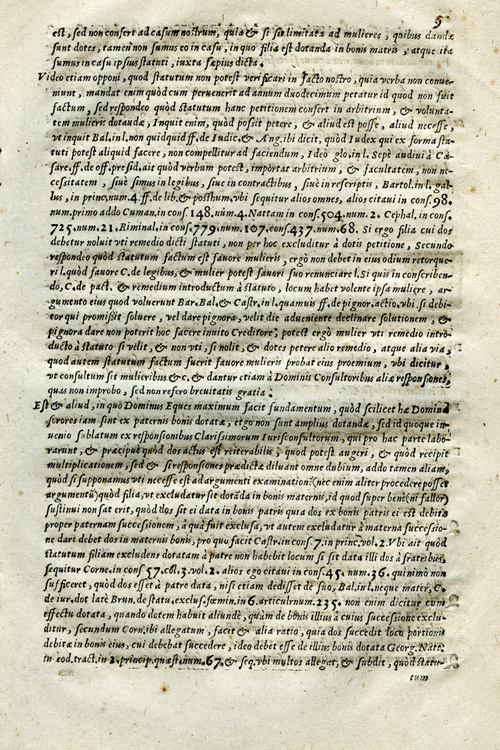 9
est, sed non confert ad casum nostrum, quia & si sic limitata ad mulieres, quibus dandæ
sunt dotes, tamen non sumus eo in casu, in quo filia est dotanda in bonis matris, atque ita
sumus in casu ipsius statuti, iuxta sæpius dicta.
Video etiam opponi, quod statutum non potest verificari in facto nostro, quia verba non conue-
niunt, mandat enim quòd cum peruenerit ad annum duodecimum petatur id quod non fuit
factum, sed respondeo quòd statutum hanc petitionem confert in arbitrium, & volunta-
tem mulieris dotandæ, Inquit enim, quòd possit petere, & aliud est posse, aliud necesse,
vt inquit Bal. in l. non quidquid ff. de Iudic. & Ang. ibi dicit, quòd Iudex qui ex forma sta-
tuti potest aliquid facere, non compellitur ad faciendum, Ideò glo. in l. Sepè audiui à Cæ-
sare. ff. de off. presid. ait quòd verbum potest, importat arbitrium, & facultatem, non ne-
cessitatem, siuè simus in legibus, siue in contractibus, siuè in rescriptis, Bartol. in l. gal-
lus, in princ. num. 4. ff. de lib. & posthum. vbi sequitur alios omnes, alios citaui in cons. 98.
num. primo addo Cuman. in cons. 148. núm. 4. Nattam in cons. 504. num. 2. Cephal. in cons.
725. num. 21. Riminal. in cons. 779. num. 107. cons. 437. num. 68. Si ergo filia cui dos
debetur noluit vti remedio dicti statuti, non per hoc excluditur à dotis petitione, Secundo
respondeo quòd statutum factum est fauore mulieris, ergò non debet in eius odium retorque-
ri l. quòd fauore C. de legibus, & mulier potest fauori suo renunciare l. Si quis in conscriben-
do, C. de pact. & remedium introductum à statuto, locum habet volente ipsa muliere, ar-
gumento eius quod voluerunt Bar. Bal. & Castr. in l. quamuis ff. de pignor. actio. vbi si debi-
tor qui promisit soluere, vel dare pignora, velit die adueniente declinare solutionem, &
pignora dare non poterit hoc facere inuito Creditore, potest ergò mulier vti remedio intro-
ducto à statuto si velit, & non vti, si nolit, & dotes petere alio remedio, atque alia via,
quod autem statutum factum fuerit fauore mulieris probat eius proemium, vbi dicitur,
vt consultum sit mulieribus &c, & dantur etiam à Dominis Consultoribus aliæ responsiones,
quas non improbo, sed non refero breuitatis gratia.
Est & aliud, in quò Dominus Eques maximum facit fundamentum, quòd scilicet hæ Dominæ
sorores iam sint ex paternis bonis dotatæ, ergo non sunt amplius dotandæ, sed id quoque in-
uenio sublatum ex responsionibus Clarissimorum Iurisconsultorum, qui pro hac parte labo-
rarunt, & præcipuè quòd dos actus est reiterabilis, quod potest augeri, & quòd recipit
multiplicationem, sed & si responsiones prædictæ diluant omne dubium, addo tamen aliam,
quòd si supponamus vti necesse est ad argumenti examination? (nec enim aliter procedere posset
argumentū) quòd filia, vt excludatur sit dotāda in bonis maternis, id quod super bene (ni fallor)
sustinui non sat erit, quòd dos sit ei data in bonis patris quia dos ex bonis patris ei est debita
proper paternam successionem, à qua fuit exclusa, vt autem excludatur à materna successio-
ne dari debet dos in maternis bonis, pro quo facit Castr. in cons. 7. in princ. vol. 2. Vbi ait quòd
statutum filiam excludens dotatam à patre non habebit locum si sit data illi dos à fratribus,
sequitur Corne. in cons 57. col. 3. vol. 2. alios ego citaui in cons. 45. num. 36. quinimò non
sufficeret, quòd dos esset à patre data, nisi etiam dedisset de suo, Bal. in l. neque mater, C.
de iur. dot latè Brun. de statu. exclus. fœmin. in 6. articulr num. 235. non enim dicitur cum
effectu dotata, quando dotem habuit aliundè, quàm de bonis illius à cuius successione exclu-
ditur, secundum Corn. ibi allegatum, facit & alia ratio, quia dos succedit loco portionis
debitæ in bonis eius, cui debebat succedere, ideo debet esse de illius bonis dotata Georg. Natt.
in eod. tract. in 2. princip. quæst. num. 67. & seq. vbi multos allegat, & subdit, quòd statu-
tum